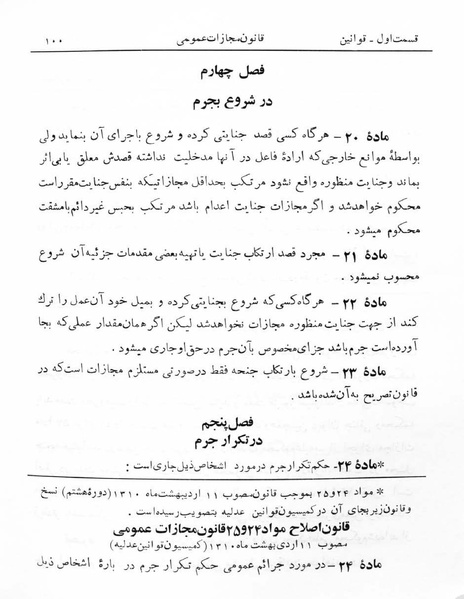 قسمت اول ـ قوانین قانون مجازات عمومی ۱۰۰
فصل چهارم
در شروع بجرم
مادهٔ ۲۰ ـ هرگاه کسی قصد جنایتی کرده و شروع باجرای آن بنماید ولی
بواسطهٔ موانع خارجی که ارادهٔ فاعل در آنها مدخلیت نداشته قصدش معلق یا بی‌اثر
بماند و جنایت منظوره واقع نشود مرتکب بحداقل مجازاتیکه بنفس جنایت مقرر است
محکوم خواهد شد و اگر مجازات جنایت اعدام باشد مرتکب بحبس غیر دائم با مشقت
محکوم میشود .
مادهٔ ۲۱ ـ مجرد قصد ارتکاب جنایت یا تهیه بعضی مقدمات جزئیه آن شروع
محسوب نمیشود .
مادهٔ ۲۲ ـ هرگاه کسی که شروع بجنایتی کرده و بمیل خود آن عمل را ترك
کند از جهت جنایت منظوره مجازات نخواهد شد لیکن اگر همان مقدار عملی که بجا
آورده است جرم باشد جزای مخصوص بآن جرم در حق او جاری میشود .
مادهٔ ۲۳ ـ شروع بارتکاب جنحه فقط در صورتی مستلزم مجازات است که در
قانون تصریح به آن شده باشد .
فصل پنجم
در تکرار جرم
*مادهٔ ۲۴ـ حکم تکرار جرم در مورد اشخاص ذیل جاری است :
* مواد ۲۴ و ۲۵ بموجب قانون مصوب ۱۱ اردیبهشت ماه ۱۳۱۰ (دورهٔ هشتم) نسخ
و قانون زیر بجای آن در کمیسیون قوانین عدلیه بتصویب رسیده است .
قانون اصلاح مواد ۲۴ و ۲۵ قانون مجازات عمومی
مصوب ۱۱ اردی‌بهشت ماه ۱۳۱۰ (کمیسیون قوانین عدلیه)
مادهٔ ۲۴ ـ در مورد جرائم عمومی حکم تکرار جرم در بارهٔ اشخاص ذیل